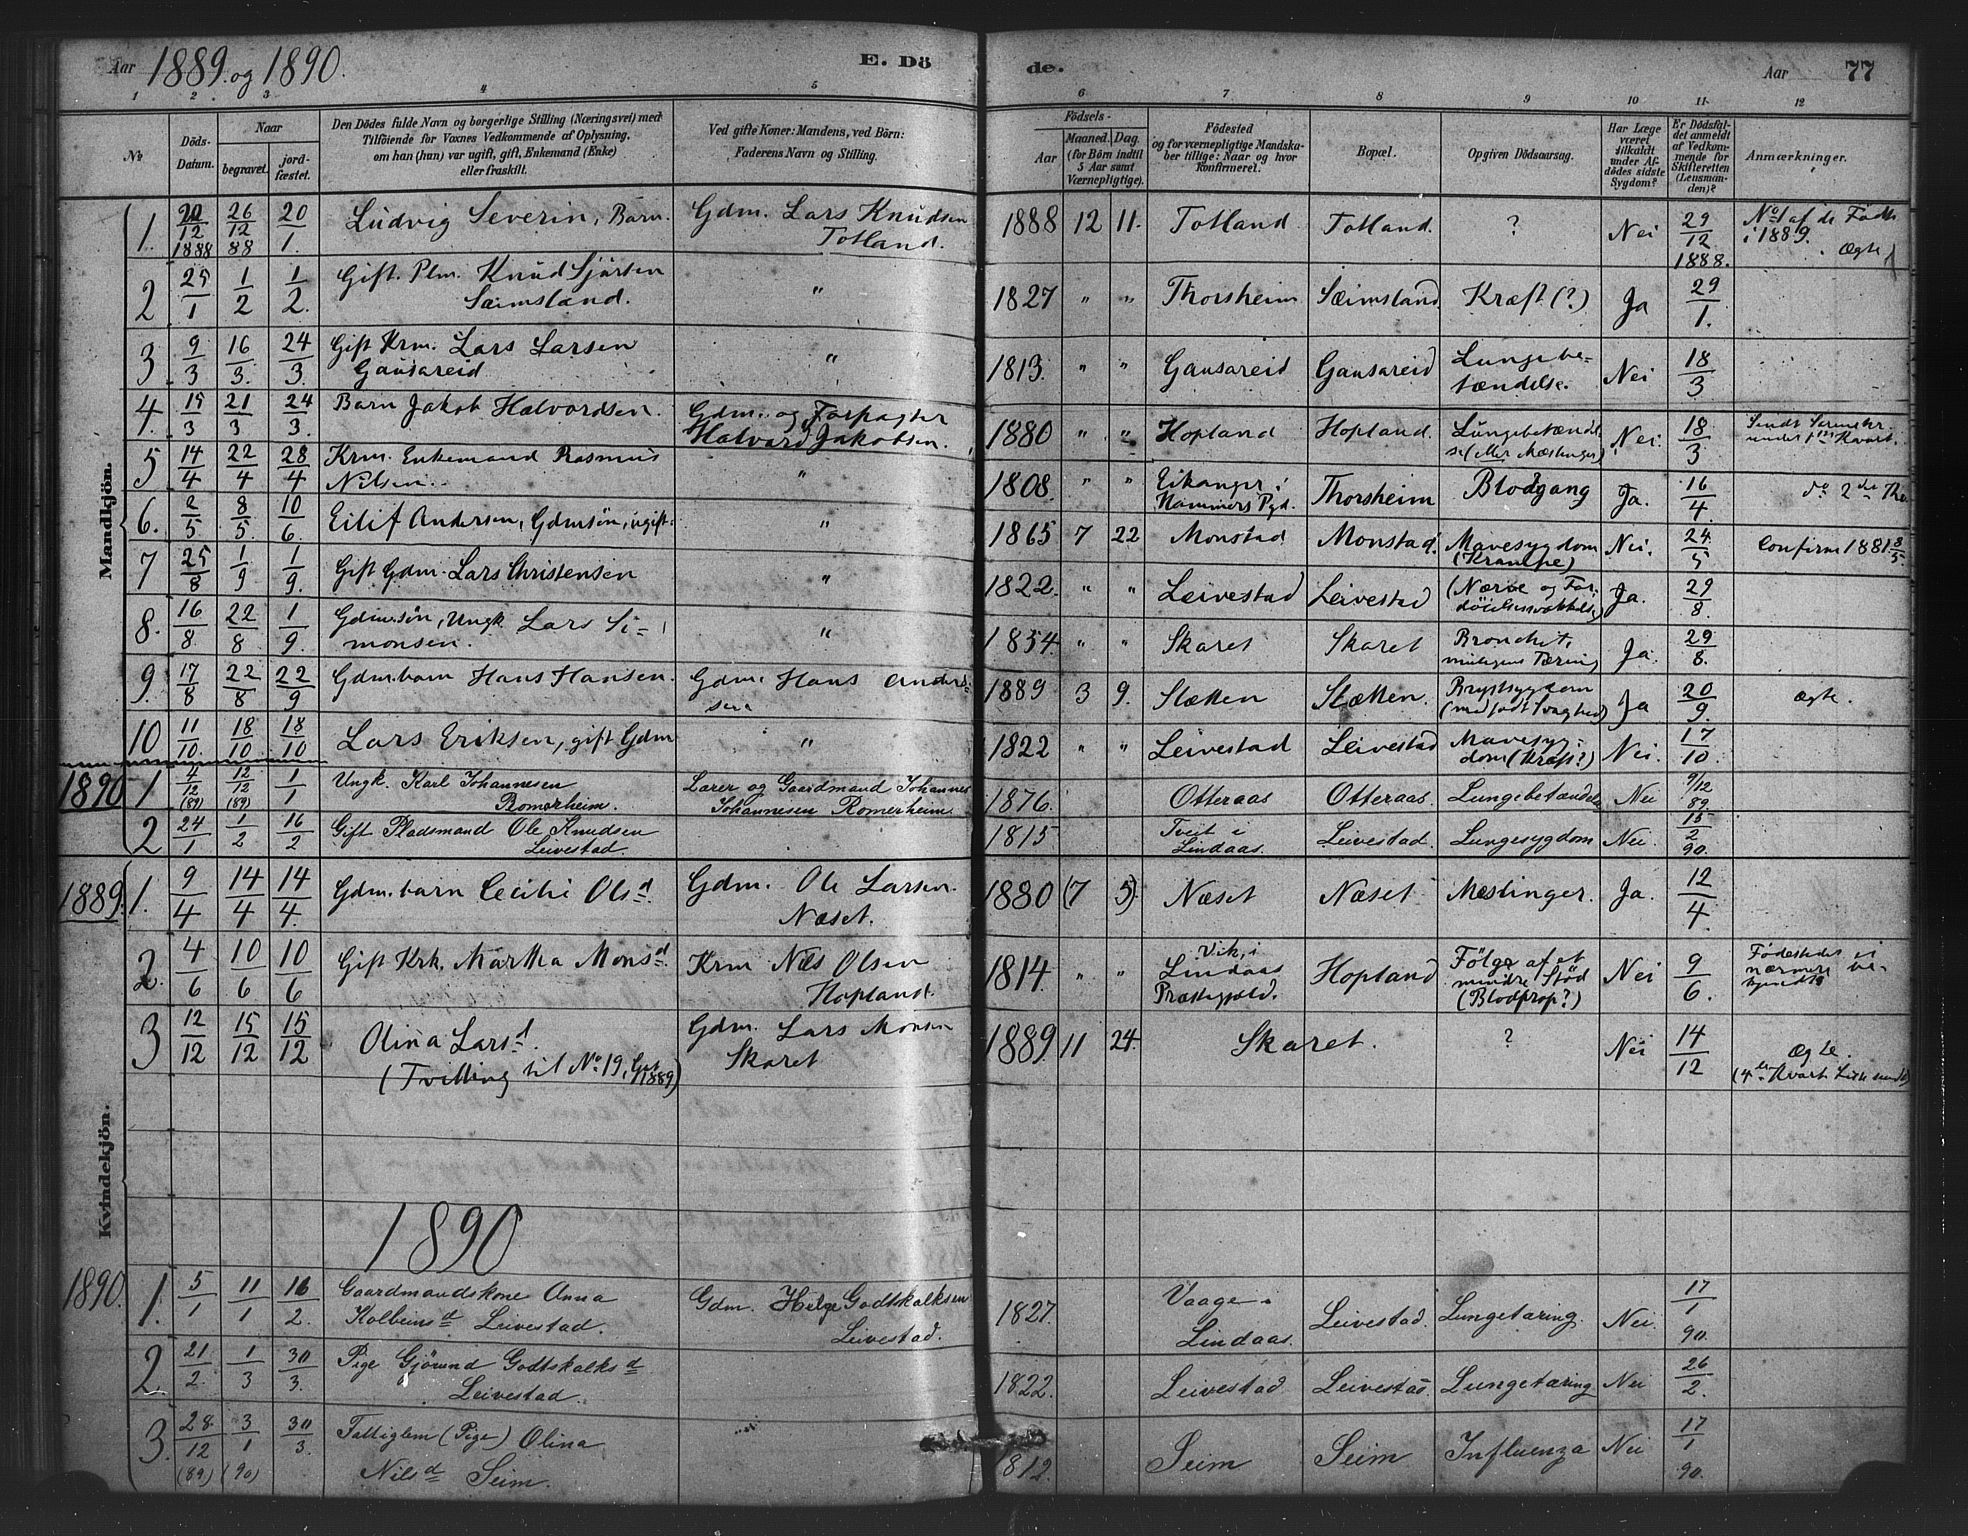 Aar 1889 og 1890.
E. Döde.
Aar 77
1 2 3 4 5 6 7 8 9 10 11 12
No
Döds-Datum.
Naar
begravet.
jord-fæstet.
Den Dödes fulde Navn og borgerlige Stilling (Næringsvei) med
Tilföiende for Voxnes Vedkommende af Oplysning,
om han (hun) var ugift, gift, Enkemand (Enke)
eller fraskilt.
Ved gifte Koner: Mandens, ved Börn:
Faderens Navn og Stilling.
Födsels-
Aar
Maaned. Dag.
(for Börn indtil
5 Aar samt
Værnepligtige).
Födested
og for værnepligtige Mandska-
ber tillige: Naar og hvor
konfirmeret.
Bopæl.
Opgiven Dödsaarsag.
Har Læge
været
tilkaldt
under Af-
dödes sidste
Sygdom?
Er Dödsfal-
det anmeldt
af Vedkom-
mende for
Skifteretten
(Lensman-
den)?
Anmærkninger.
Mandkjön.
1. 22/12 1888 26/12 88 20/1. Ludvig Severin, Barn. Gdm. Lars Knudsen Totland. 1888 12 11. Totland Totland. ? Nei 29/12 1888. No 1 af de Födte i 1889. Ægte
2 25/1 1/2 1/2. Gift. Plm. Knud Sjursen Sæimsland. " 1827 " " Thorsheim Sæimsland Kræft (?) Ja 29/1.
3 9/3 16/3. 24/3. Gift Krm. Lars Larsen Gausareid " 1813. " " Gausareid Gausareid Lungebe-tændelse. Nei 18/3
4. 15/3 21/3 24/3. Barn Jakob Halvordsen. Gdm. og Forpagter Halvard Jakobsen. 1880 " " Hopland Hopland. Lungebetændelse (efter Mæslinger) Nei. 18/3 Sendt
5 14/4 22/4 28/4 Krm. Enkemand Rasmus Nilsen. " 1808. " " Eikanger i Hammers Pgd. Thorsheim Blodgang Ja. 16/4. do 2den
6. 2/5 8/5. 10/6. Eilif Andersen, Gdmsøn, ugift. " 1865 7 22 Monstad Monstad. Mavesygdom (Krampe) Nei. 24/5 Confirm 1881 8/5
7 25/8 1/9 1/9. Gift Gdm. Lars Christensen " 1822. " " Leivestad Leivestad (Nærve og Fordöielsessvækkelse) Ja. 29/8.
8. 16/8 22/8 1/9. Gdmsøn, Ungk Lars Si-monsen. " 1854. " " Skaret Skaret Bronchit, muligens Tæring Ja. 29/8.
9. 17/8 22/8 22/9 Gdm.barn Hans Hansen. Gdm. Hans Anders-sen 1889 3 9. Sletten Sletten. Brystsygdom (medfödt Svaghed) Ja 20/9. Ægte.
10 11/10. 18/10 18/10 Lars Eriksen, gift Gdm " 1822 " " Leivestad Leivestad Mavesyg-dom (Kræft?) Nei. 17/10.
1890 1 4/12 (89) 12/12 (89) 1/1 Ungk. Karl Johannesen Romerheim. Lærer og Gaardmand Johannes Johannesen Romerheim 1876. Otteraas Otteraas. Lungebetændelse Nei 9/12 89.
2 24/1 1/2 16/2 Gift Pladsmand Ole Knudsen Leivestad. 1815 Tveit i Lindaas. Leivestad. Lungesygdom Nei 15/2 90.
Kvindekjön.
1889. 1. 9/4 14/4 14/4. Gdm.barn Cecilie Olsd. Gdm. Ole Larsen Næset. 1880 (7 5). Næset Næset. Mæslinger. Ja. 12/4.
2. 4/6 10/6 10/6 Gift Krk. Martha Monsd. Krm Nils Olsen Hopland. 1814. " " Vik i Lindaas Præstegjeld. Hopland Fölge af et mindre Stöd (Blodprop?) Nei 9/6. Födestedet ei nærmere be-kjendt
3 12/12 15/12 15/12 Olina Larsd. (Tvilling til No 19, Geb 1889) Gdm. Lars Monsen Skaret 1889 11 24. Skaret. ? Nei 14/12 Ægte. (4de Kvart. Liste sendt)
1890
1890. 1. 5/1 11/1 16/2. Gaardmandskone Anna Kolbeinsd Leivestad. Gdm. Helge Godtskalksen Leivestad. 1827. Vaage i Lindaas. Leivestad. Lungetæring. Nei. 17/1 90.
2. 21/2. 1/3 30/3. Pige Gjörund Godtskalksd Leivestad. 1822. Leivestad Leivestad. Lungetæring Nei 26/2.
3. 28/12 (89) 3/1 (90) 30/3. Fattiglem (Pige) Olina Nilsd Seim. 1812. Seim Seim Influenza Nei 17/1 90.